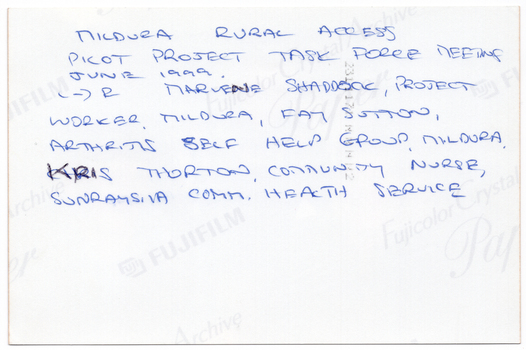 MILDURA RURAL ACCESS
PILOT PROJECT TASK FORCE MEETING
JUNE 1999.
L → R MARVENE SHADDOCK, PROJECT
WORKER, MILDURA, FAY SUTTON,
ARTHRITIS SELF HELP GROUP, MILDURA.
KRIS THORTON, COMMUNITY NURSE,
SUNRAYSIA COMM. HEALTH SERVICE
FUJIFILM
Fujicolor Crystal
Archive
Paper